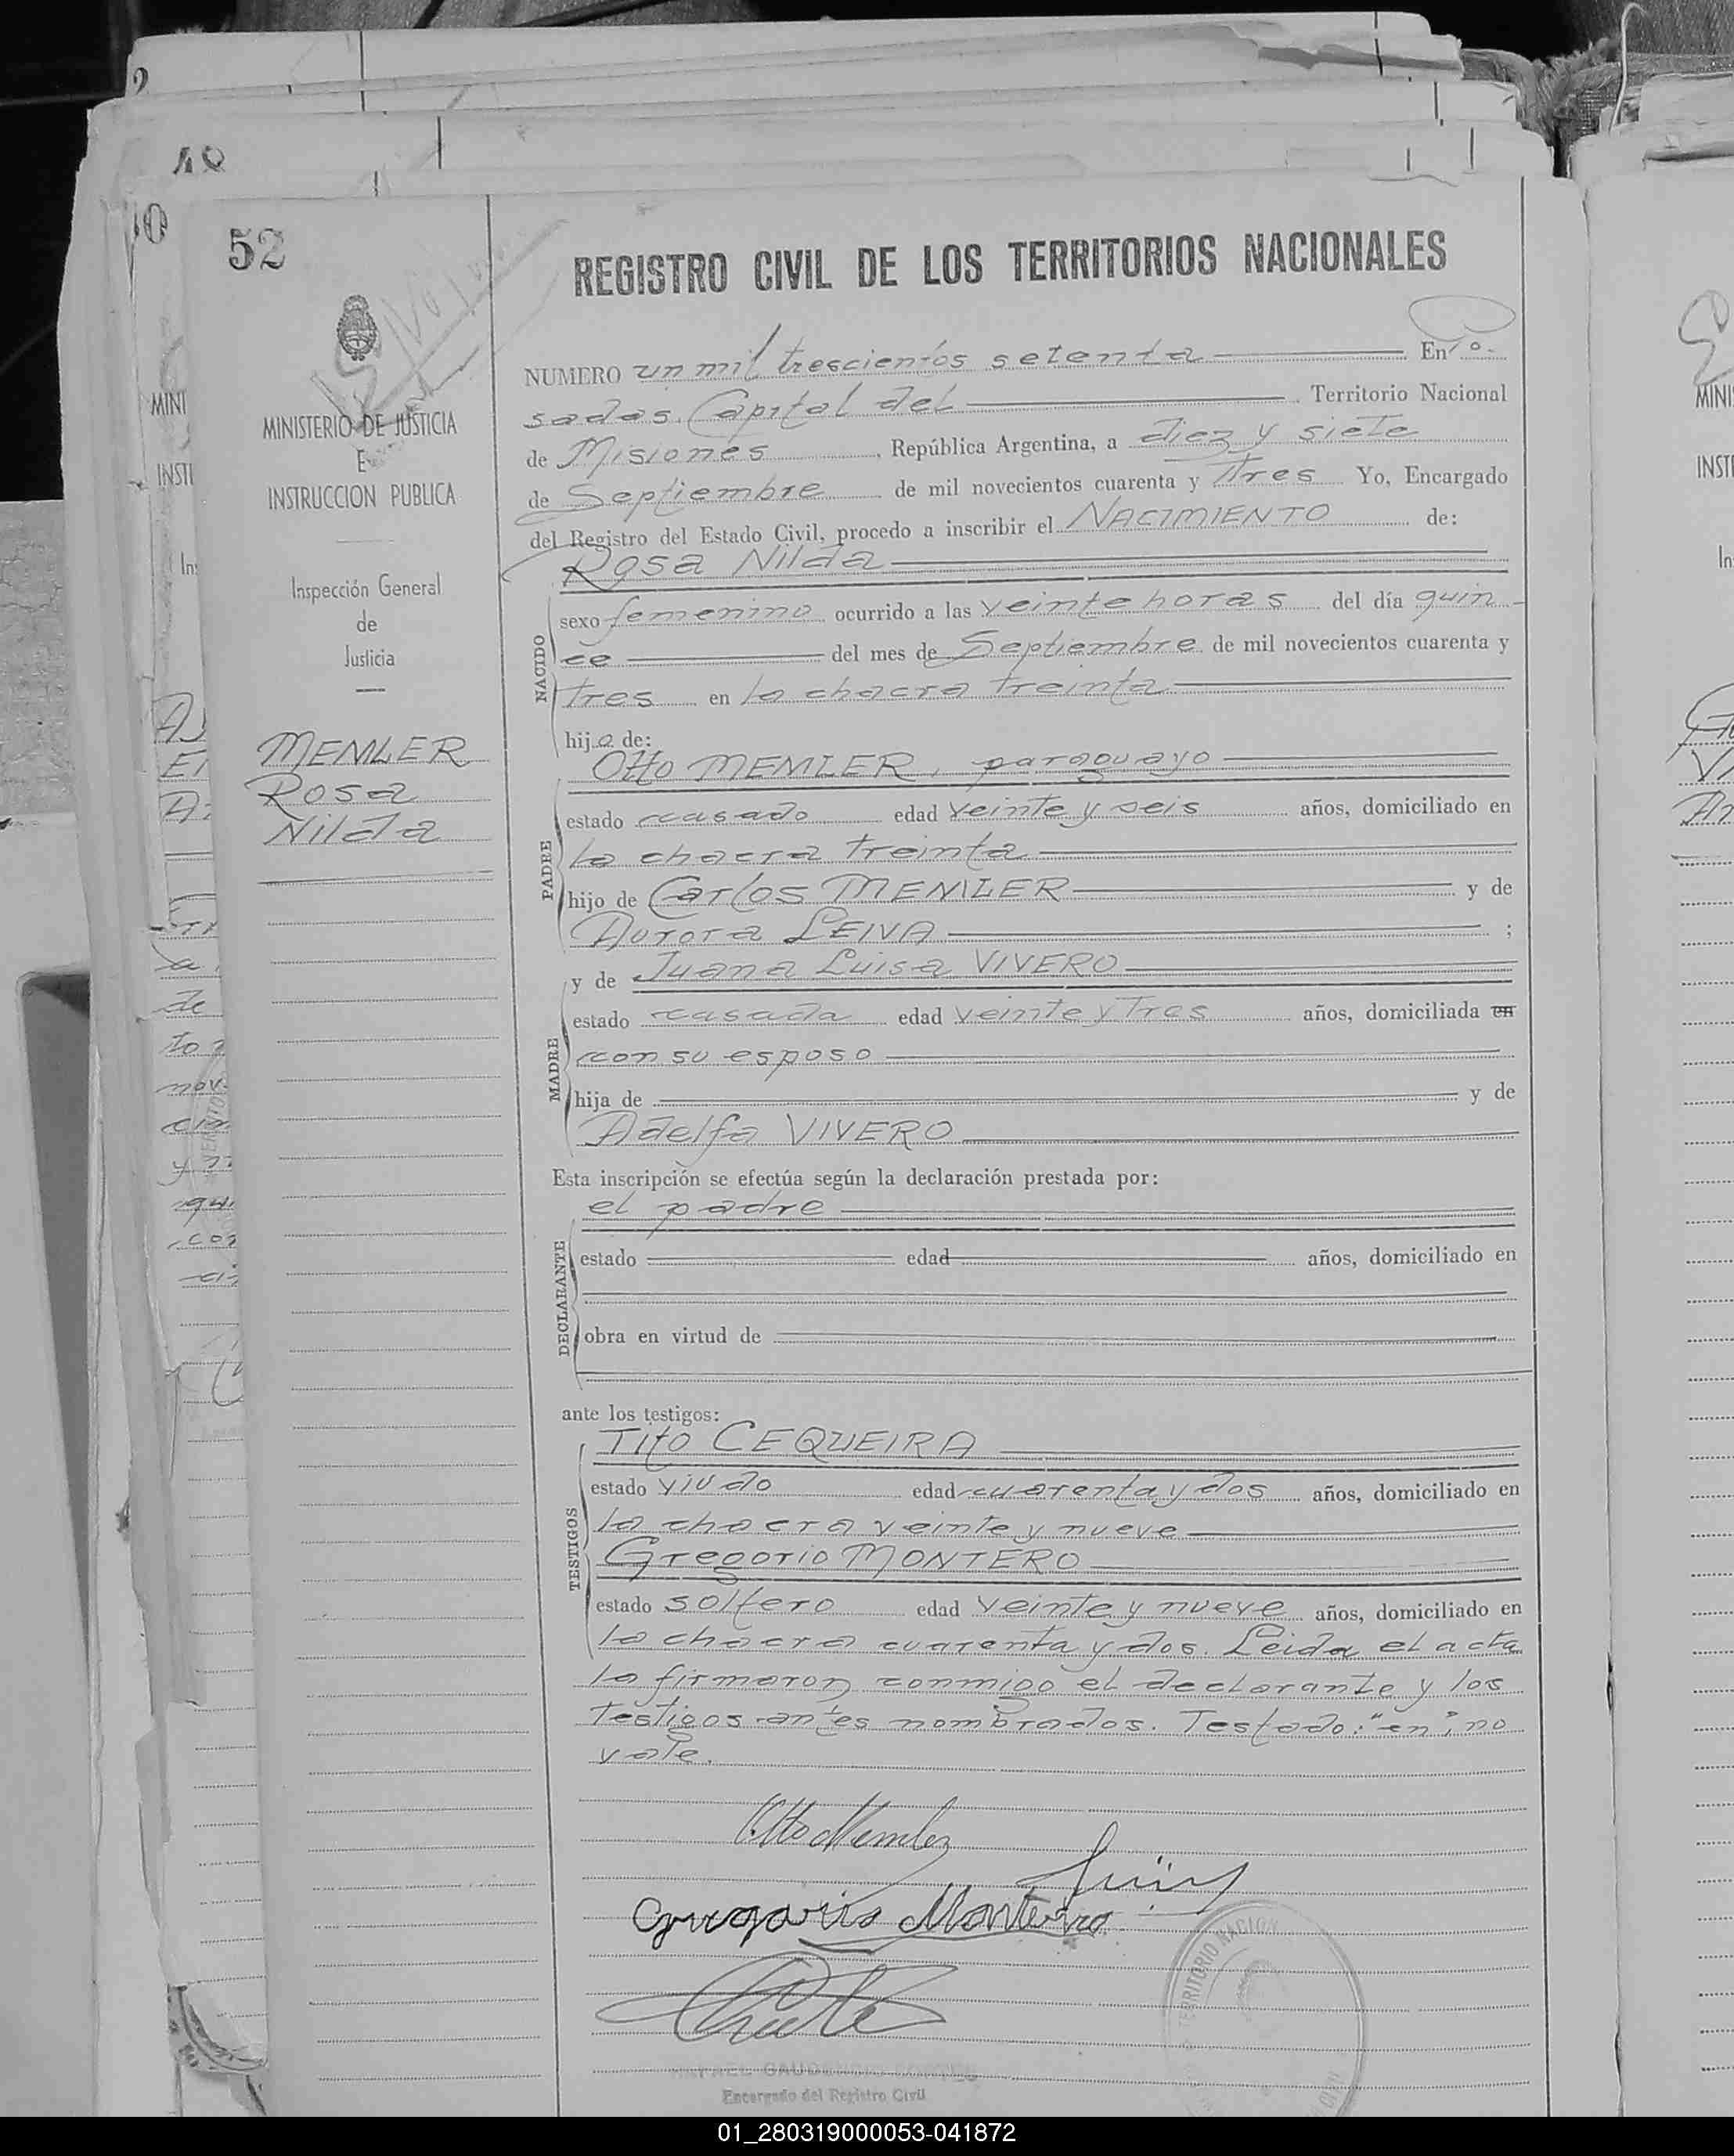 2
48
10
52
REGISTRO CIVIL DE LOS TERRITORIOS NACIONALES
MINISTERIO DE JUSTICIA
E
INSTRUCCION PUBLICA
Inspección General
de
Justicia
MEMLER
Rosa
Nilda
NUMERO un mil trescientos setenta En Po-
sadas, Capital del Territorio Nacional
de Misiones, República Argentina, a diez y siete
de Septiembre de mil novecientos cuarenta y Tres Yo, Encargado
del Registro del Estado Civil, procedo a inscribir el NACIMIENTO de:
Rosa Nilda
NACIDO
sexo femenino ocurrido a las veinte horas del día quin-
ce del mes de Septiembre de mil novecientos cuarenta y
tres en la chacra treinta
hija de:
Otto MEMLER, paraguayo
PADRE
estado casado edad veinte y seis años, domiciliado en
la chacra treinta
hijo de Carlos MEMLER y de
Aurora LEIVA ;
y de Juana Luisa VIVERO
MADRE
estado casada edad veinte y tres años, domiciliada en
con su esposo
hija de y de
Adelfa VIVERO
Esta inscripción se efectúa según la declaración prestada por:
el padre
DECLARANTE
estado edad años, domiciliado en
obra en virtud de
ante los testigos:
Tito CEQUEIRA
TESTIGOS
estado viudo edad cuarenta y dos años, domiciliado en
la chacra veinte y nueve
Gregorio MONTERO
estado soltero edad veinte y nueve años, domiciliado en
la chacra cuarenta y dos. Leida el acta
la firmaron conmigo el declarante y los
testigos antes nombrados. Testado: "en"; no
vale.
Otto Memler
Gregorio Montero
TERRITORIO NACION
Encargado del Registro Civil
01_280319000053-041872